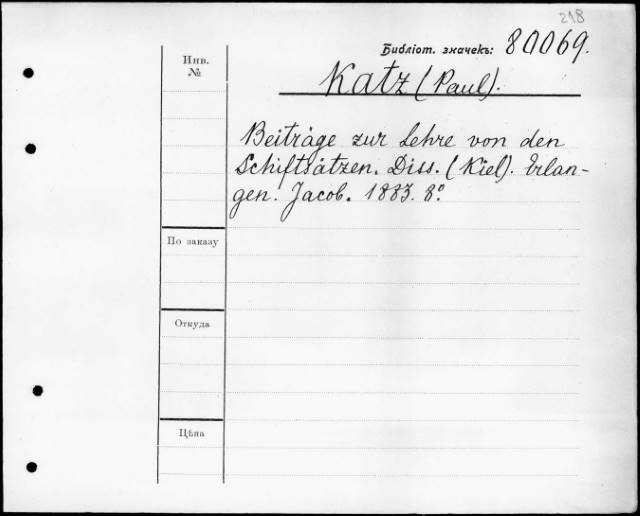 218
Библіот. значекъ: 80069.
Инв.
№
Katz (Paul).
Beiträge zur Lehre von den
Schiftsätzen. Diss. (Kiel). Erlan-
gen. Jacob. 1883. 8°.
По заказу
Откуда
Цѣна